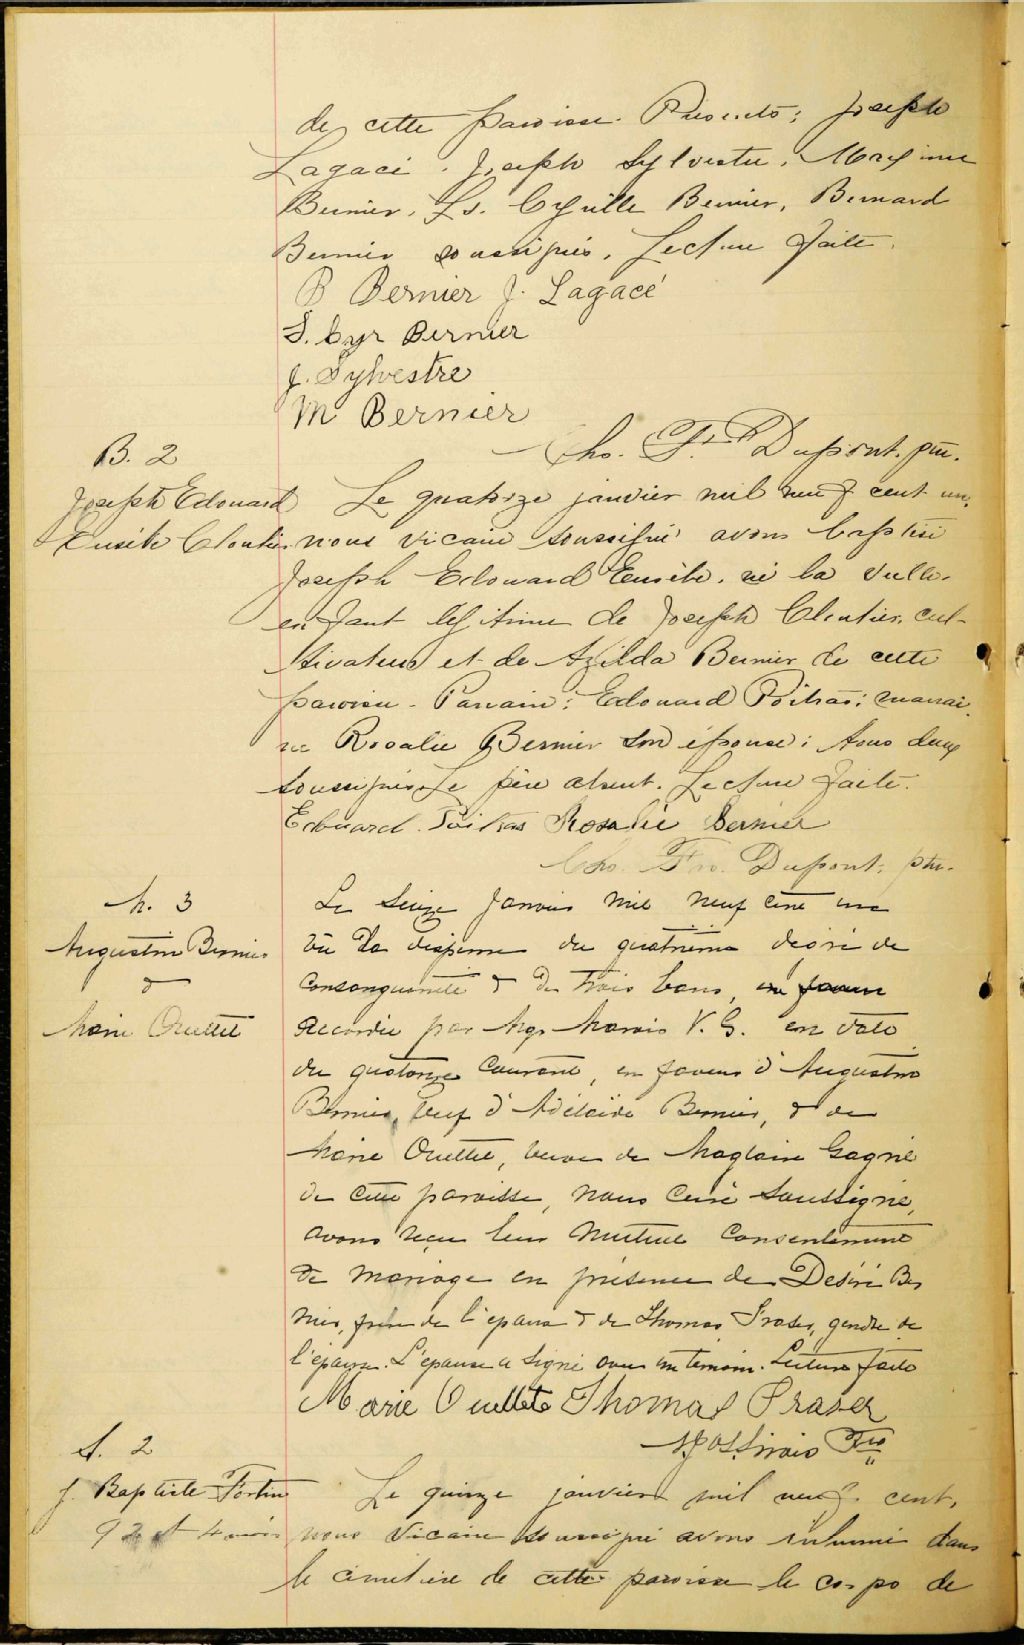 de cette paroisse. Présents; Joseph
Lagacé. Joseph Sylvestre, Maxime
Bernier, Ls. Cyrille Bernier, Bernard
Bernier soussignés, Lecture faite.
B Bernier J. Lagacé
S. Cyr Bernier
J. Sylvestre
M Bernier
Chs. F. Dupont, ptre.
B. 2
Joseph Edouard
Eusèbe Cloutier
Le quatorze janvier mil neuf cent un,
nous vicaire soussigné avons baptisé
Joseph Edouard Eusèbe, né la veille,
enfant légitime de Joseph Cloutier, cul-
tivateur et de Azilda Bernier de cette
paroisse. Parrain: Edouard Poitras; marrai-
ne Rosalie Bernier son épouse; tous deux
soussignés. Le père absent. Lecture faite.
Edouard Poitras Rosalie Bernier
Chs. Frs. Dupont, ptre.
M. 3
Augustin Bernier
&
Marie Ouellet
Le seize Janvier mil neuf cent un
Vu la dispense du quatrième degré de
Consanguinité & de trois bans, en faveur
accordée par Mgr Marois V. G. en date
du quatorze courant, en faveur d'Augustin
Bernier, veuf d'Adélaïde Bernier, & de
Marie Ouellet, veuve de Magloire Gagné
de cette paroisse, nous curé soussigné,
avons reçu leur mutuel consentement
de mariage en présence de Désiré Ber
nier, frère de l'époux & de Thomas Fraser, gendre de
l'épouse. L'épouse a signé avec un témoin. Lecture faite
Marie Ouellet Thomas Fraser
Sirois Ptre
S. 2
J. Baptiste Fortin
92 et 4 mois
Le quinze janvier mil neuf cent,
nous vicaire soussigné avons inhumé dans
le cimetière de cette paroisse le corps de